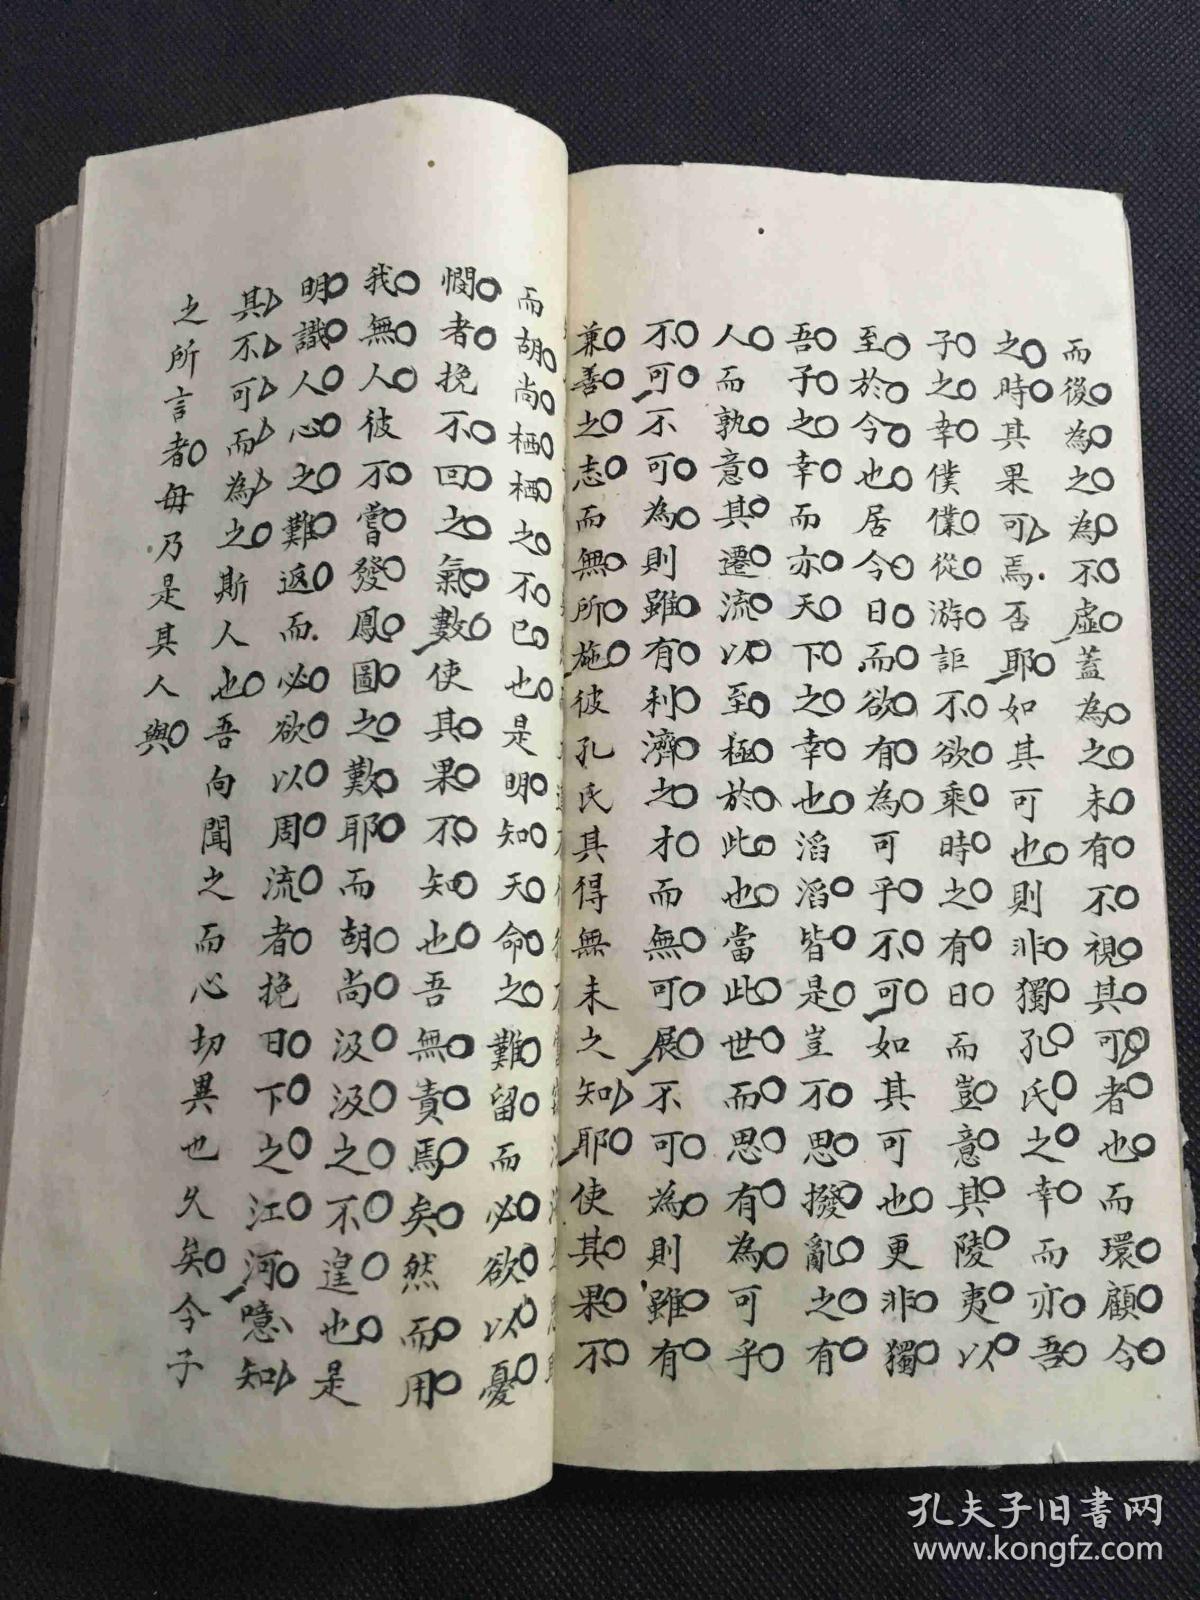 而後為之為不虛蓋為之未有不視其可者也而環顧今
之時其果可焉否耶如其可也則非獨孔氏之幸而亦吾
子之幸僕僕從游詎不欲乘時之有日而豈意其陵夷以
至於今也居今日而欲有為可乎不可如其可也更非獨
吾子之幸而亦天下之幸也滔滔皆是豈不思撥亂之有
人而孰意其遷流以至極於此也當此世而思有為可乎
不可不可為則雖有利濟之才而無可展不可為則雖有
兼善之志而無所施彼孔氏其得無未之知耶使其果不
而胡尚栖栖之不已也是明知天命之難留而必欲以憂
憫者挽不回之氣數使其果不知也吾無責焉矣然而用
我無人彼不嘗發鳳圖之歎耶而胡尚汲汲之不遑也是
明識人心之難返而必欲以周流者挽日下之江河噫知
其不可而為之斯人也吾向聞之而心切異也久矣今子
之所言者毋乃是其人與
孔夫子旧书网
www.kongfz.com